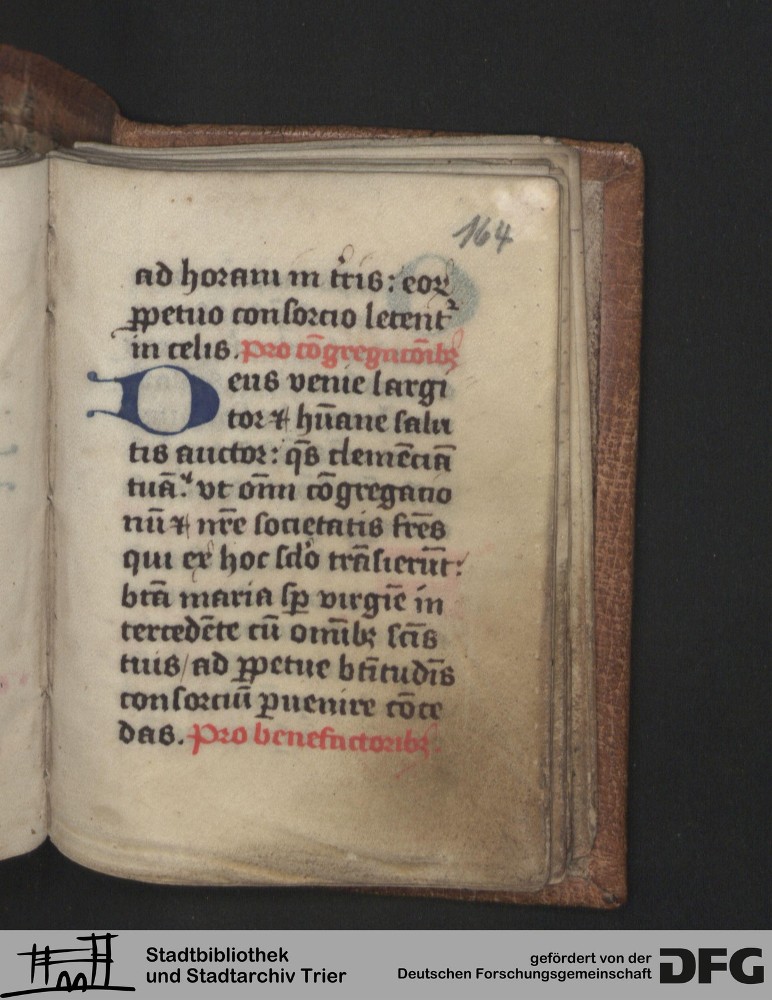 164
ad horam in t̄ris: eoꝝ
ꝓpetuo consorcio letent᷑
in celis. Pro cōgregacōībꝫ
Deus venie largi
tor ⁊ hūane salu
tis auctor: qs̄ clemēciā
tuā: vt om̄i cōgregacio
nū ⁊ nr̄e societatis fr̄es
qui ex hoc sclo̅ trāsierūt:
btā maria sp̄ virgīe in
tercedēte cū om̄ībꝫ scīs
tuis/ad ꝓpetue btītudīs
consorciū ꝑuenire cōce
das. Pro benefactoribꝫ.
Stadtbibliothek
und Stadtarchiv Trier
gefördert von der
Deutschen Forschungsgemeinschaft
DFG